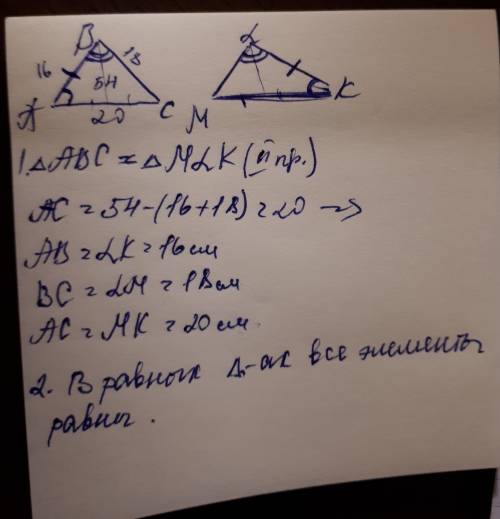 B
L
16
18
54
A
20
C
M
K
1. △ABC = △MLK (II пр.)
AC = 54-(16+18) = 20 =>
AB = LK = 16 см
BC = LM = 18 см
AC = MK = 20 см.
2. В равных △-ах все элементы
равны.